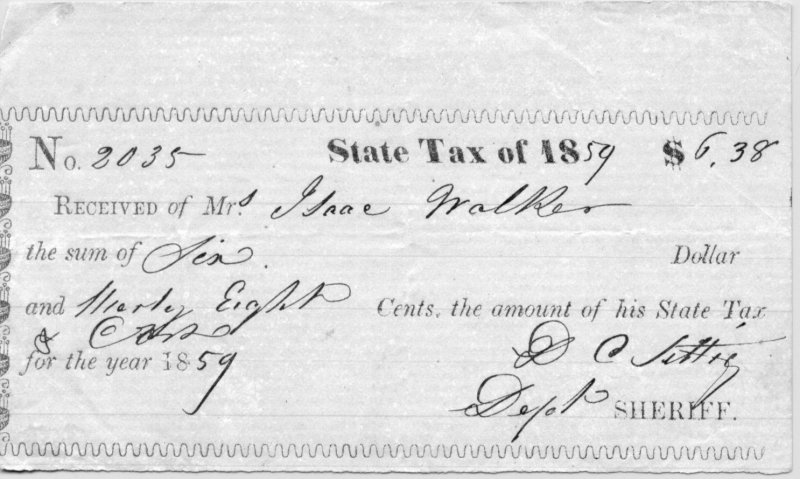 No. 2035 State Tax of 1859 $ 6.38
RECEIVED of Mrs. Isaac Walker
the sum of Six Dollar
and thirty Eight Cents, the amount of his State Tax
&
for the year 1859 D C
Dept SHERIFF.